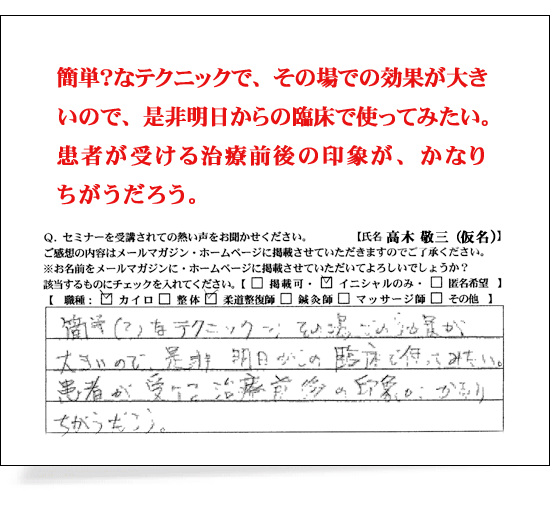 簡単?なテクニックで、その場での効果が大き
いので、是非明日からの臨床で使ってみたい。
患者が受ける治療前後の印象が、かなり
ちがうだろう。
Q. セミナーを受講されての熱い声をお聞かせください。 【氏名 高木 敬三（仮名）】
ご感想の内容はメールマガジン・ホームページに掲載させていただきますのでご了承ください。
※お名前をメールマガジンに・ホームページに掲載させていただいてよろしいでしょうか？
該当するものにチェックを入れてください。【 □ 掲載可・ ☑ イニシャルのみ・ □ 匿名希望 】
【 職種： ☑ カイロ □ 整体 ☑ 柔道整復師 □ 鍼灸師 □ マッサージ師 □ その他 】
簡単(?)なテクニックで、その場での効果が
大きいので、是非 明日からの臨床で使ってみたい。
患者が受ける治療前後の印象が、かなり
ちがうだろう。